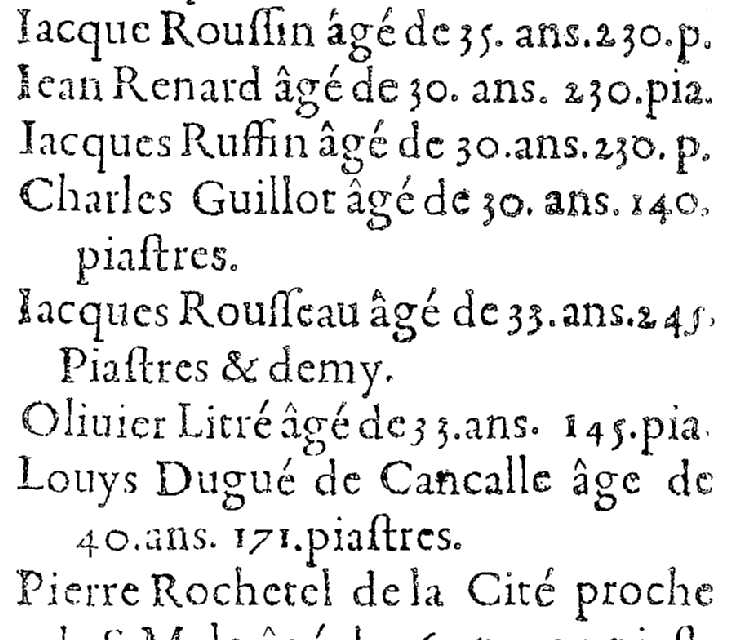 Iacque Rouſſin âgé de 35. ans. 230. p.
Iean Renard âgé de 30. ans. 230. pia.
Iacques Ruffin âgé de 30. ans. 230. p.
Charles Guillot âgé de 30. ans. 140.
piaſtres.
Iacques Rouſſeau âgé de 33. ans. 245,
Piaſtres & demy.
Oliuier Litré âgé de 33. ans. 145. pia.
Louys Dugué de Cancalle âge de
40. ans. 171. piaſtres.
Pierre Rochetel de la Cité proche